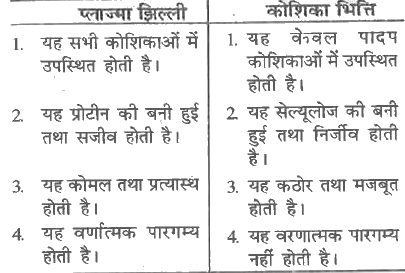 प्लाज्मा झिल्ली
1. यह सभी कोशिकाओं में
उपस्थित होती है।
2. यह प्रोटीन की बनी हुई
तथा सजीव होती है।
3. यह कोमल तथा प्रत्यास्थ
होती है।
4. यह वर्णात्मक पारगम्य
होती है।
कोशिका भित्ति
1. यह केवल पादप
कोशिकाओं में उपस्थित
होती है।
2. यह सेल्यूलोज की बनी
हुई तथा निर्जीव होती
है।
3. यह कठोर तथा मजबूत
होती है।
4. यह वरणात्मक पारगम्य
नहीं होती है।